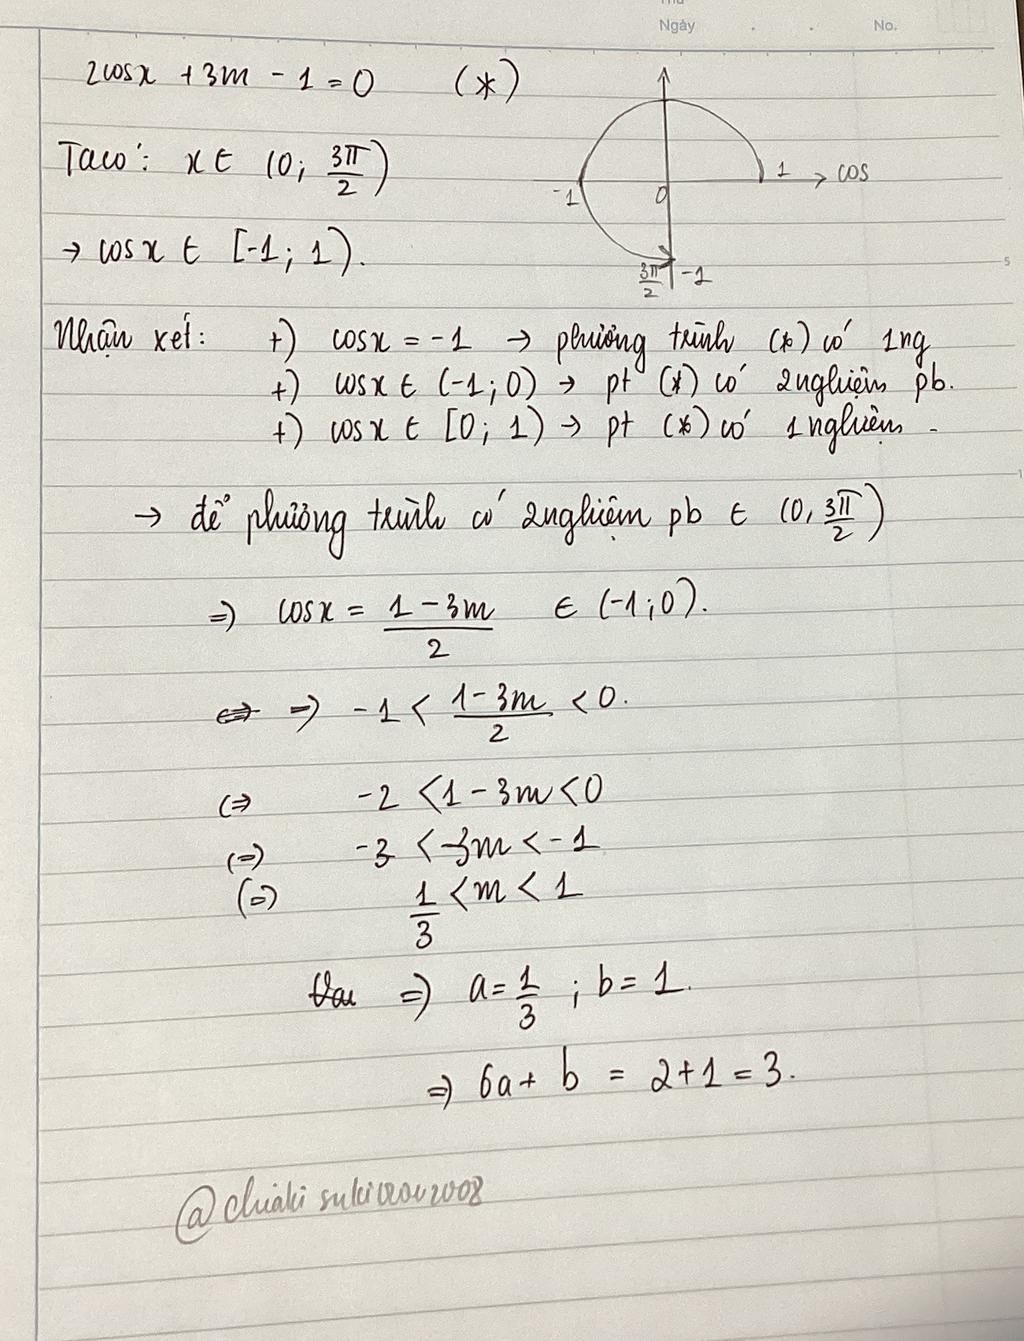 Thứ
Ngày . . No.
2cosx + 3m - 1 = 0 (*)
Ta có: x ∈ (0; 3π/2)
→ cosx ∈ [-1; 1).
1 cos
-1 0
3π/2 -1
5
Nhận xét: +) cosx = -1 → phương trình (*) có 1ng
+) cosx ∈ (-1; 0) → pt (*) có 2nghiệm pb.
+) cosx ∈ [0; 1) → pt (*) có 1nghiệm.
→ để phương trình có 2nghiệm pb ∈ (0, 3π/2)
=> cosx = (1 - 3m)/2 ∈ (-1; 0).
=> -1 < (1 - 3m)/2 < 0.
(=> -2 < 1 - 3m < 0
(=) -3 < -3m < -1
(=) 1/3 < m < 1
=> a = 1/3 ; b = 1.
=> 6a + b = 2 + 1 = 3.